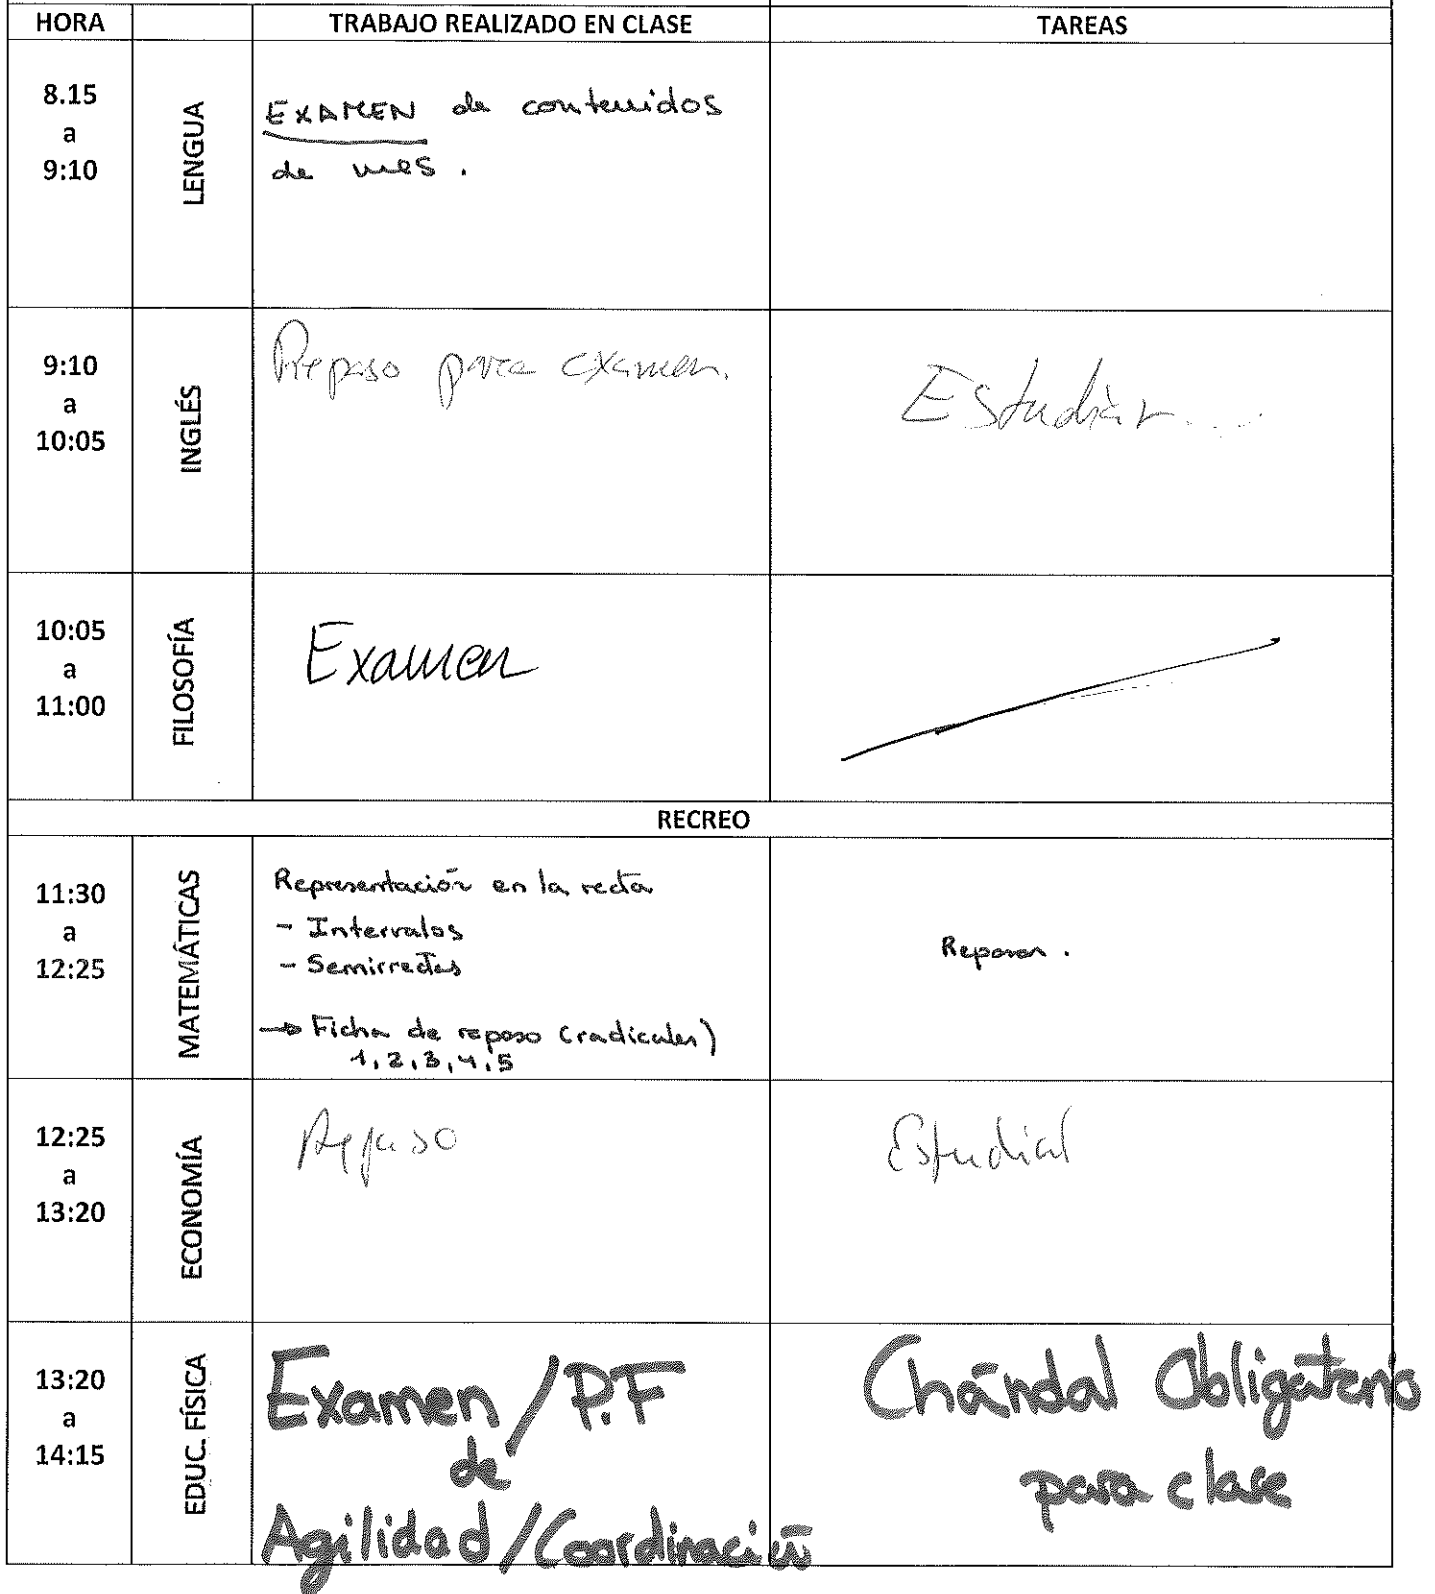 HORA TRABAJO REALIZADO EN CLASE TAREAS
8.15
a
9:10
LENGUA
EXAMEN de contenidos
de mes.
9:10
a
10:05
INGLÉS
Repaso para examen.
Estudiar...
10:05
a
11:00
FILOSOFÍA
Examen
RECREO
11:30
a
12:25
MATEMÁTICAS
Representación en la recta
- Intervalos
- Semirrectas
→ Ficha de repaso (radicales)
1, 2, 3, 4, 5
Repasar.
12:25
a
13:20
ECONOMÍA
Repaso
Estudiar
13:20
a
14:15
EDUC. FÍSICA
Examen / P.F
de
Agilidad / Coordinación
Chándal Obligatorio
para clase